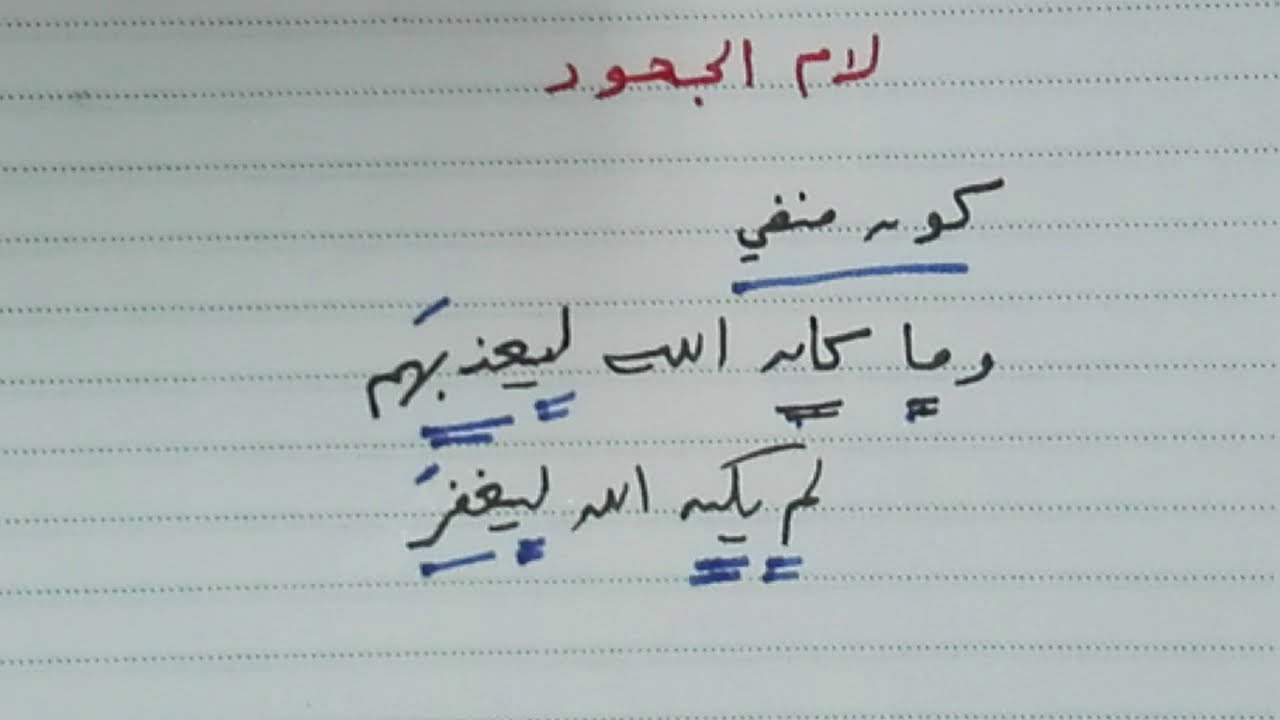 لام الجحود
كون منفي
وما كان الله ليعذبَهم
لم يكن الله ليغفرَ